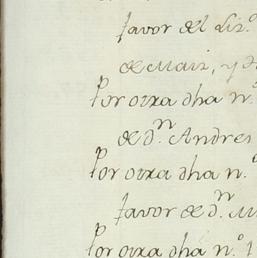 favor del Liz.º
de Mair, y d
Por otra dha n.º
de d.ⁿ Andres
Por otra dha n.º
favor de d.ⁿ M
Por otra dha n.º 1